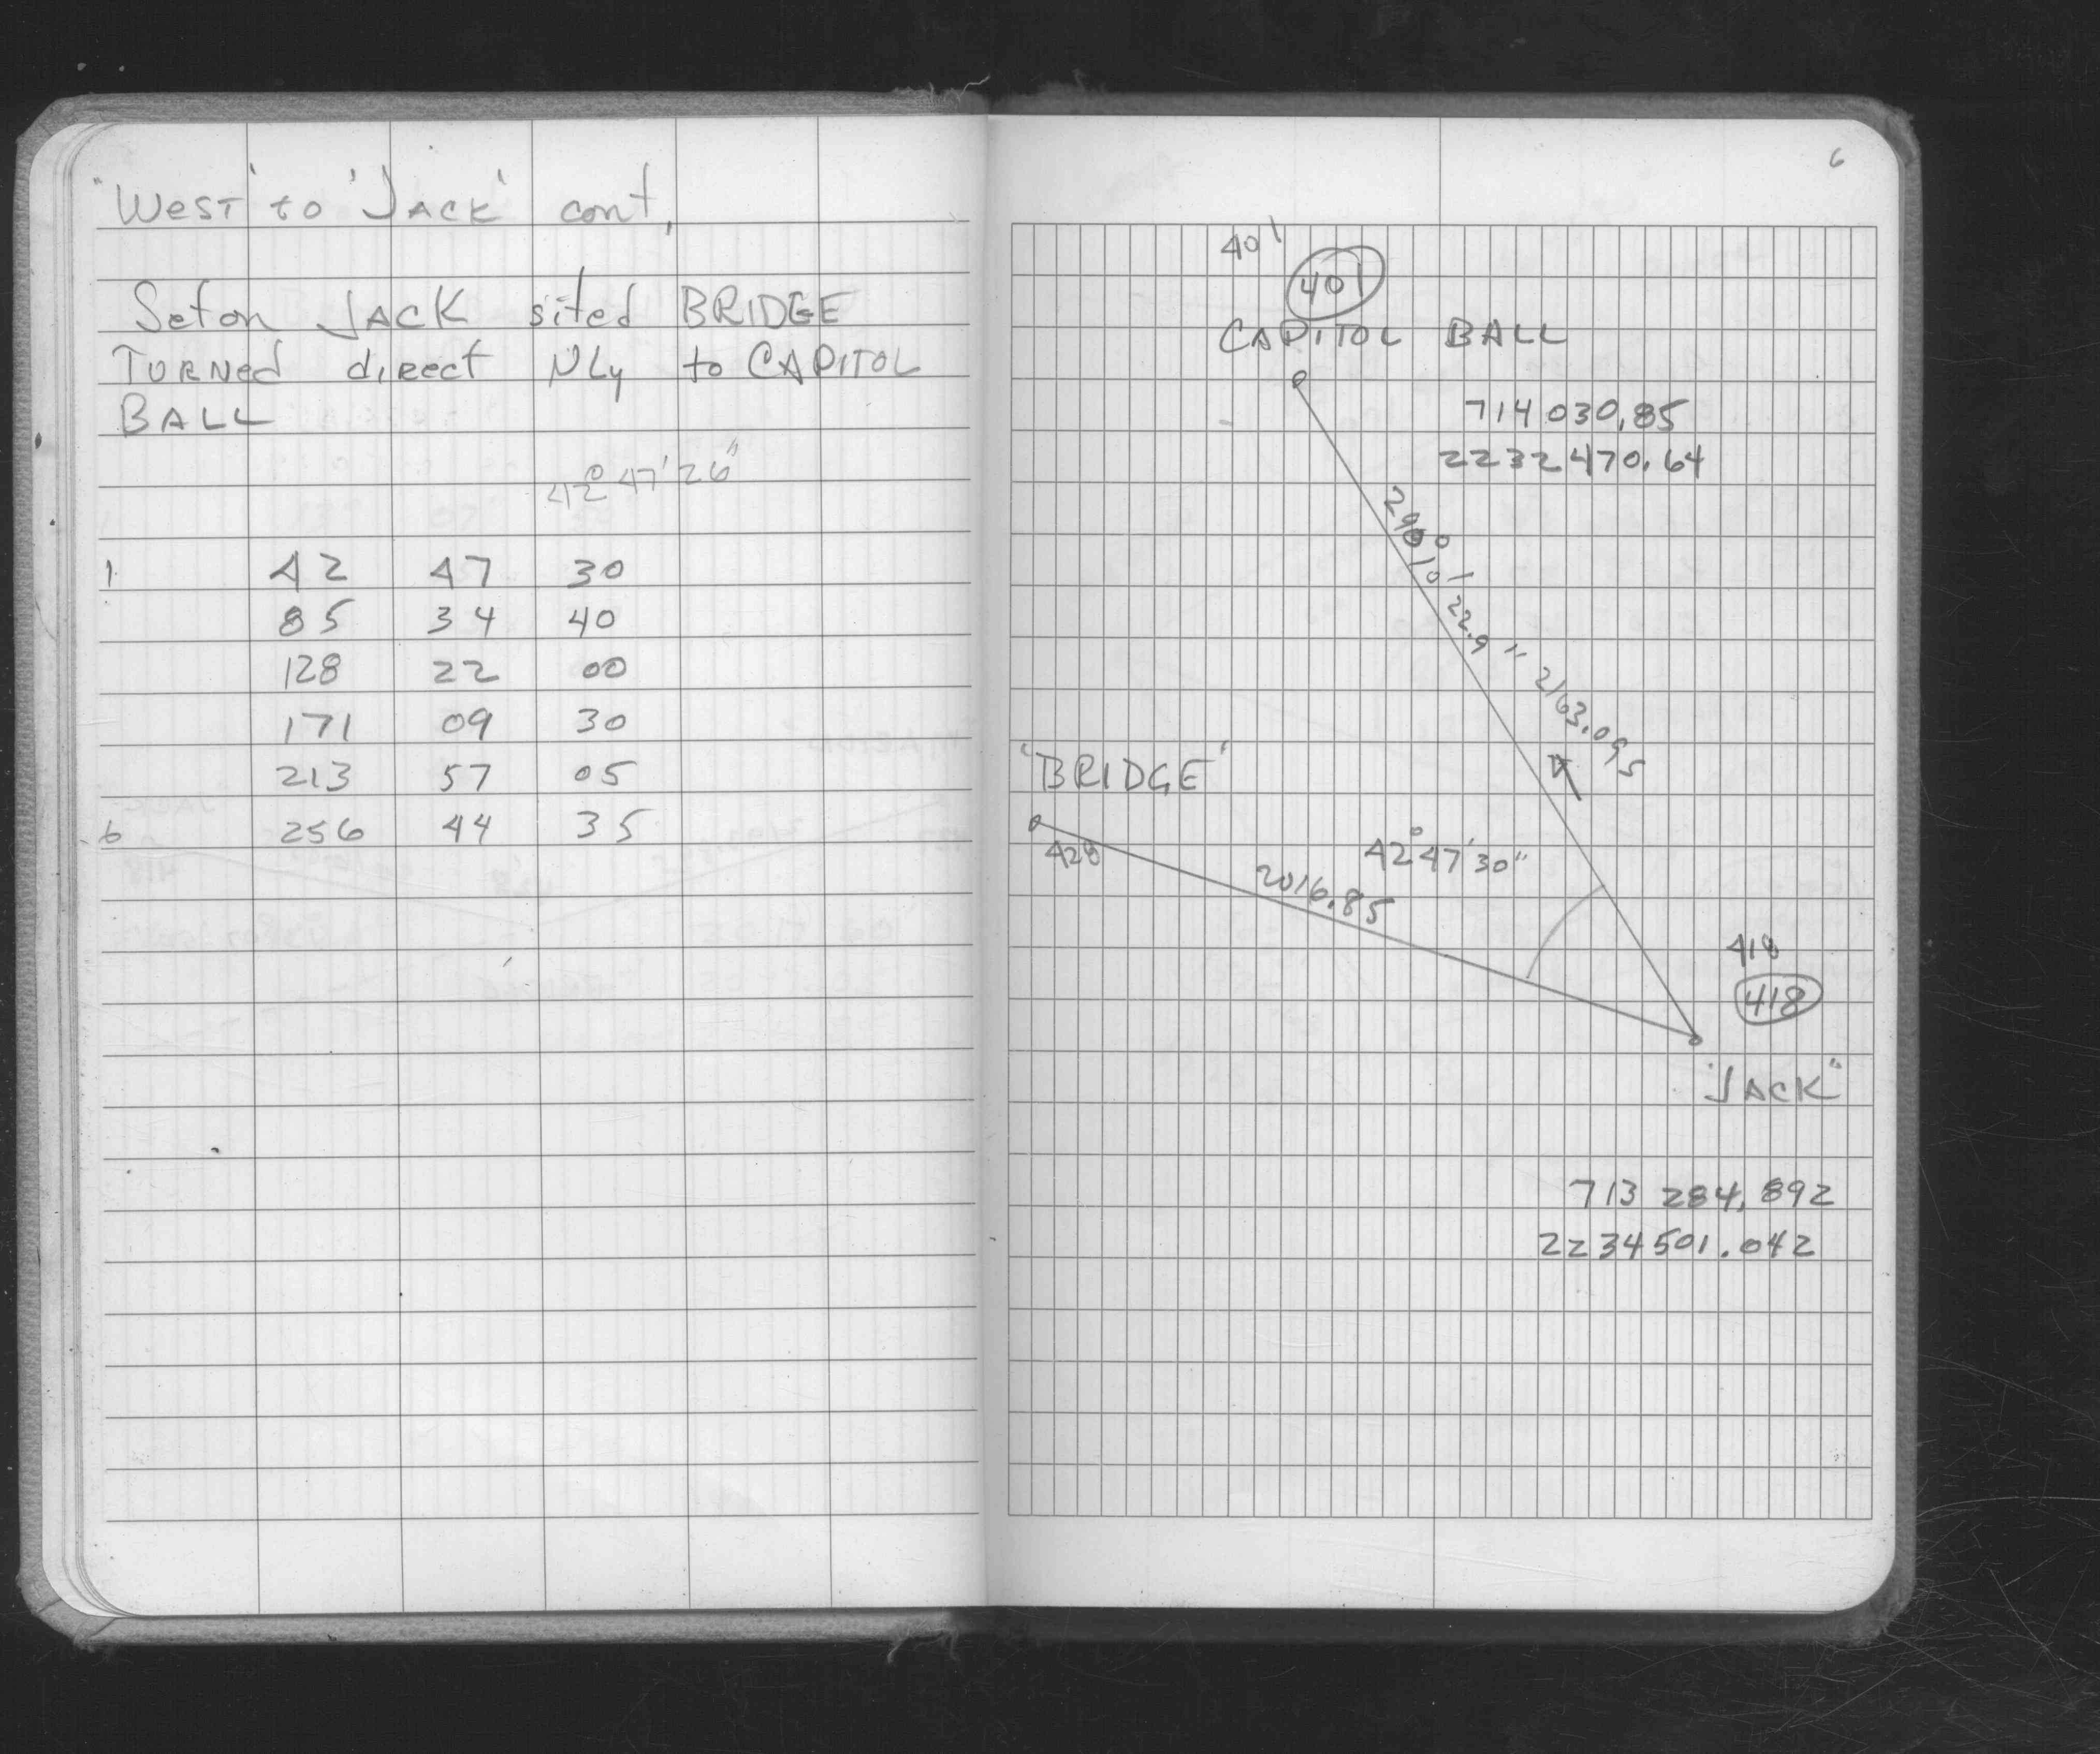 "West" to 'Jack' cont,
Set on JACK sited BRIDGE
TURNED direct Nly to CAPITOL
BALL
42° 47' 26"
1 42 47 30
85 34 40
128 22 00
171 09 30
213 57 05
6 256 44 35
6
401
401
CAPITOL BALL
714 030.85
2232 470.64
290° 10' 22.9" 2163.095
'BRIDGE'
428
42° 47' 30"
2016.85
418
418
"JACK"
713 284.892
2234501.042